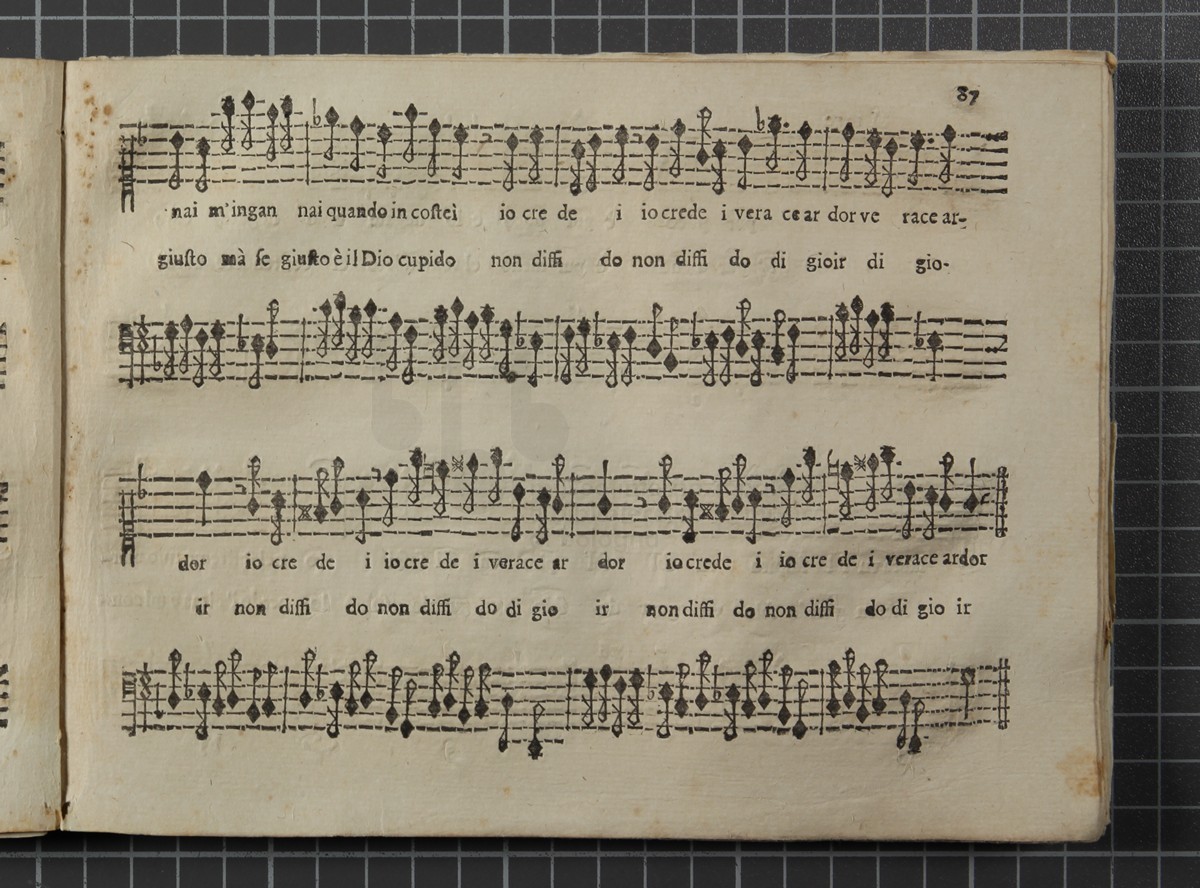 87
nai m'ingan nai quando in costei io cre de i io crede i vera ce ar dor ve race ar-
giusto mà se giusto è il Dio cupido non diffi do non diffi do di gioir di gio-
dor io cre de i io cre de i verace ar dor io crede i io cre de i verace ardor
ir non diffi do non diffi do di gio ir non diffi do non diffi do di gio ir